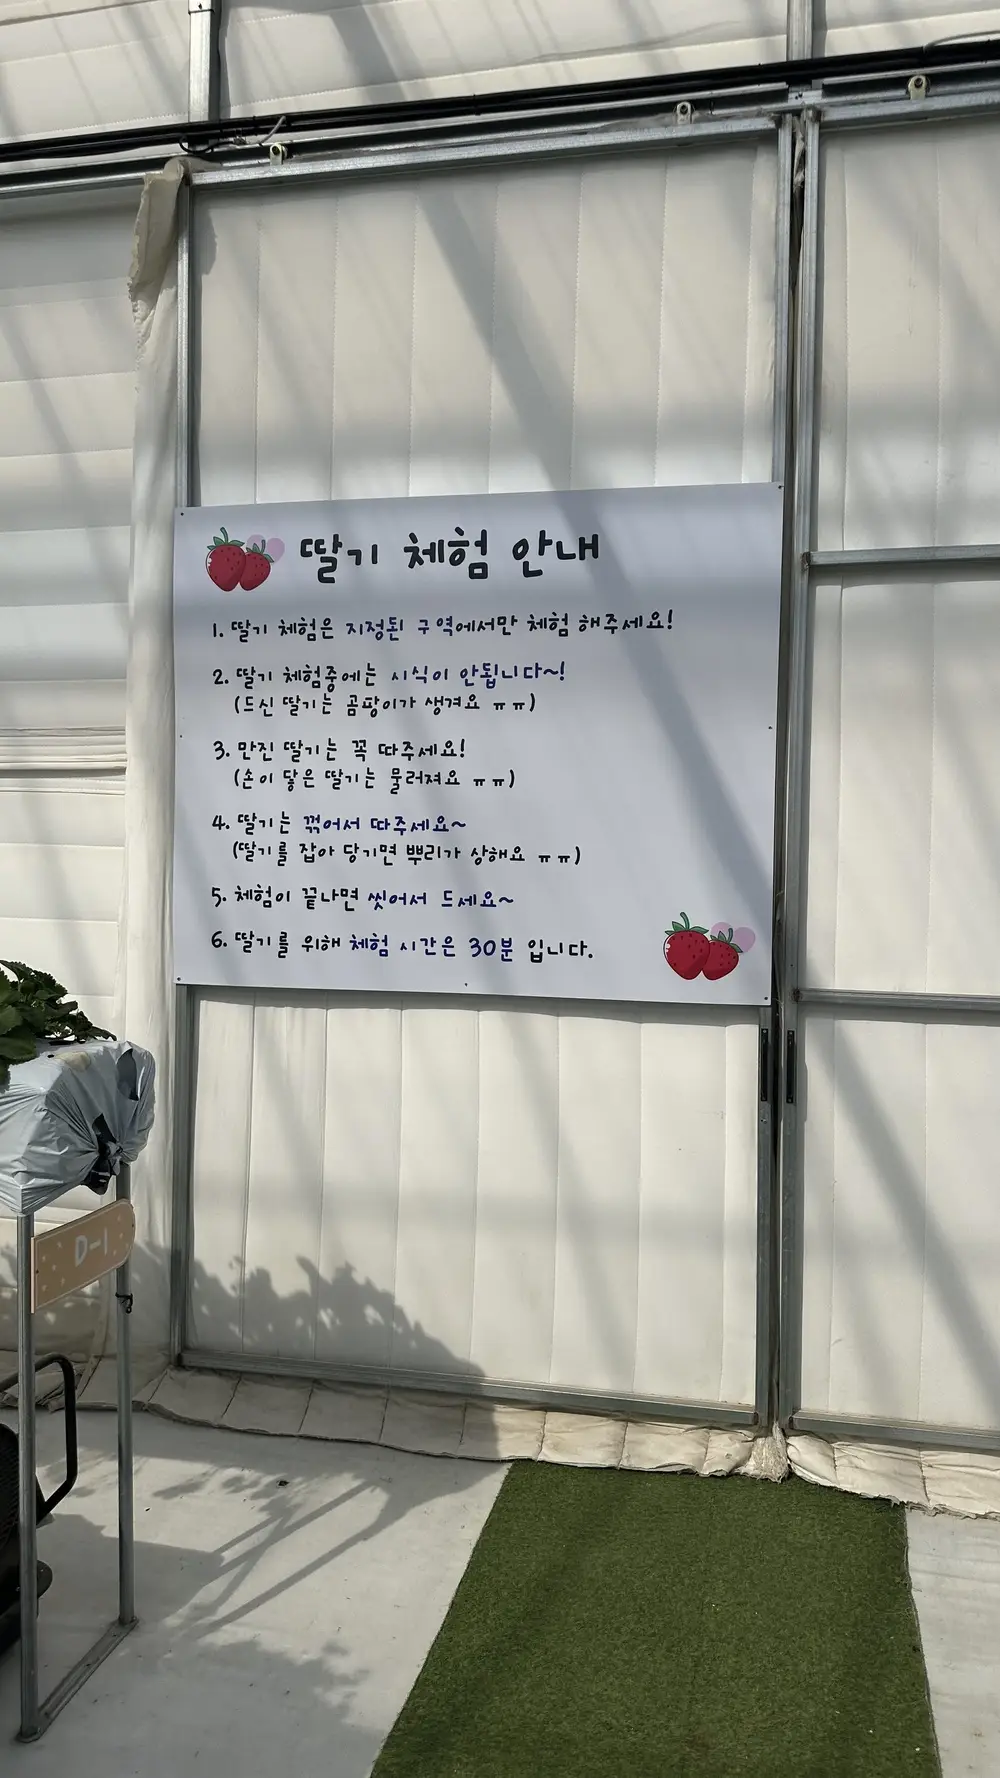 딸기 체험 안내
1. 딸기 체험은 지정된 구역에서만 체험 해주세요!
2. 딸기 체험중에는 시식이 안됩니다~!
(드신 딸기는 곰팡이가 생겨요 ㅠㅠ)
3. 만진 딸기는 꼭 따주세요!
(손이 닿은 딸기는 물러져요 ㅠㅠ)
4. 딸기는 꺾어서 따주세요~
(딸기를 잡아 당기면 뿌리가 상해요 ㅠㅠ)
5. 체험이 끝나면 씻어서 드세요~
6. 딸기를 위해 체험 시간은 30분 입니다.
D-1